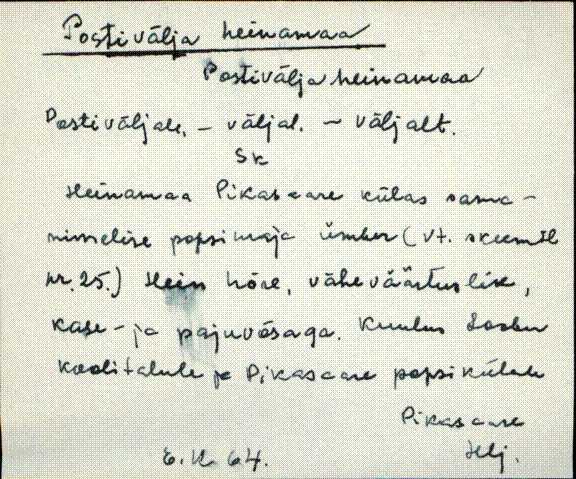 Postivälja heinamaa
Postivälja heinamaa
Postiväljale, – väljal. – väljalt.
Sk
Heinamaa Pikasaare külas sama-
nimelise popsimaja ümber (vt. skeemil
nr. 25.) Hein hõre, väheväärtuslik,
kase- ja pajuvõsaga. Kuulus
Koolitalule ja Pikasaare popsikülale
Pikasaare
Hlj.
E. K. 64.